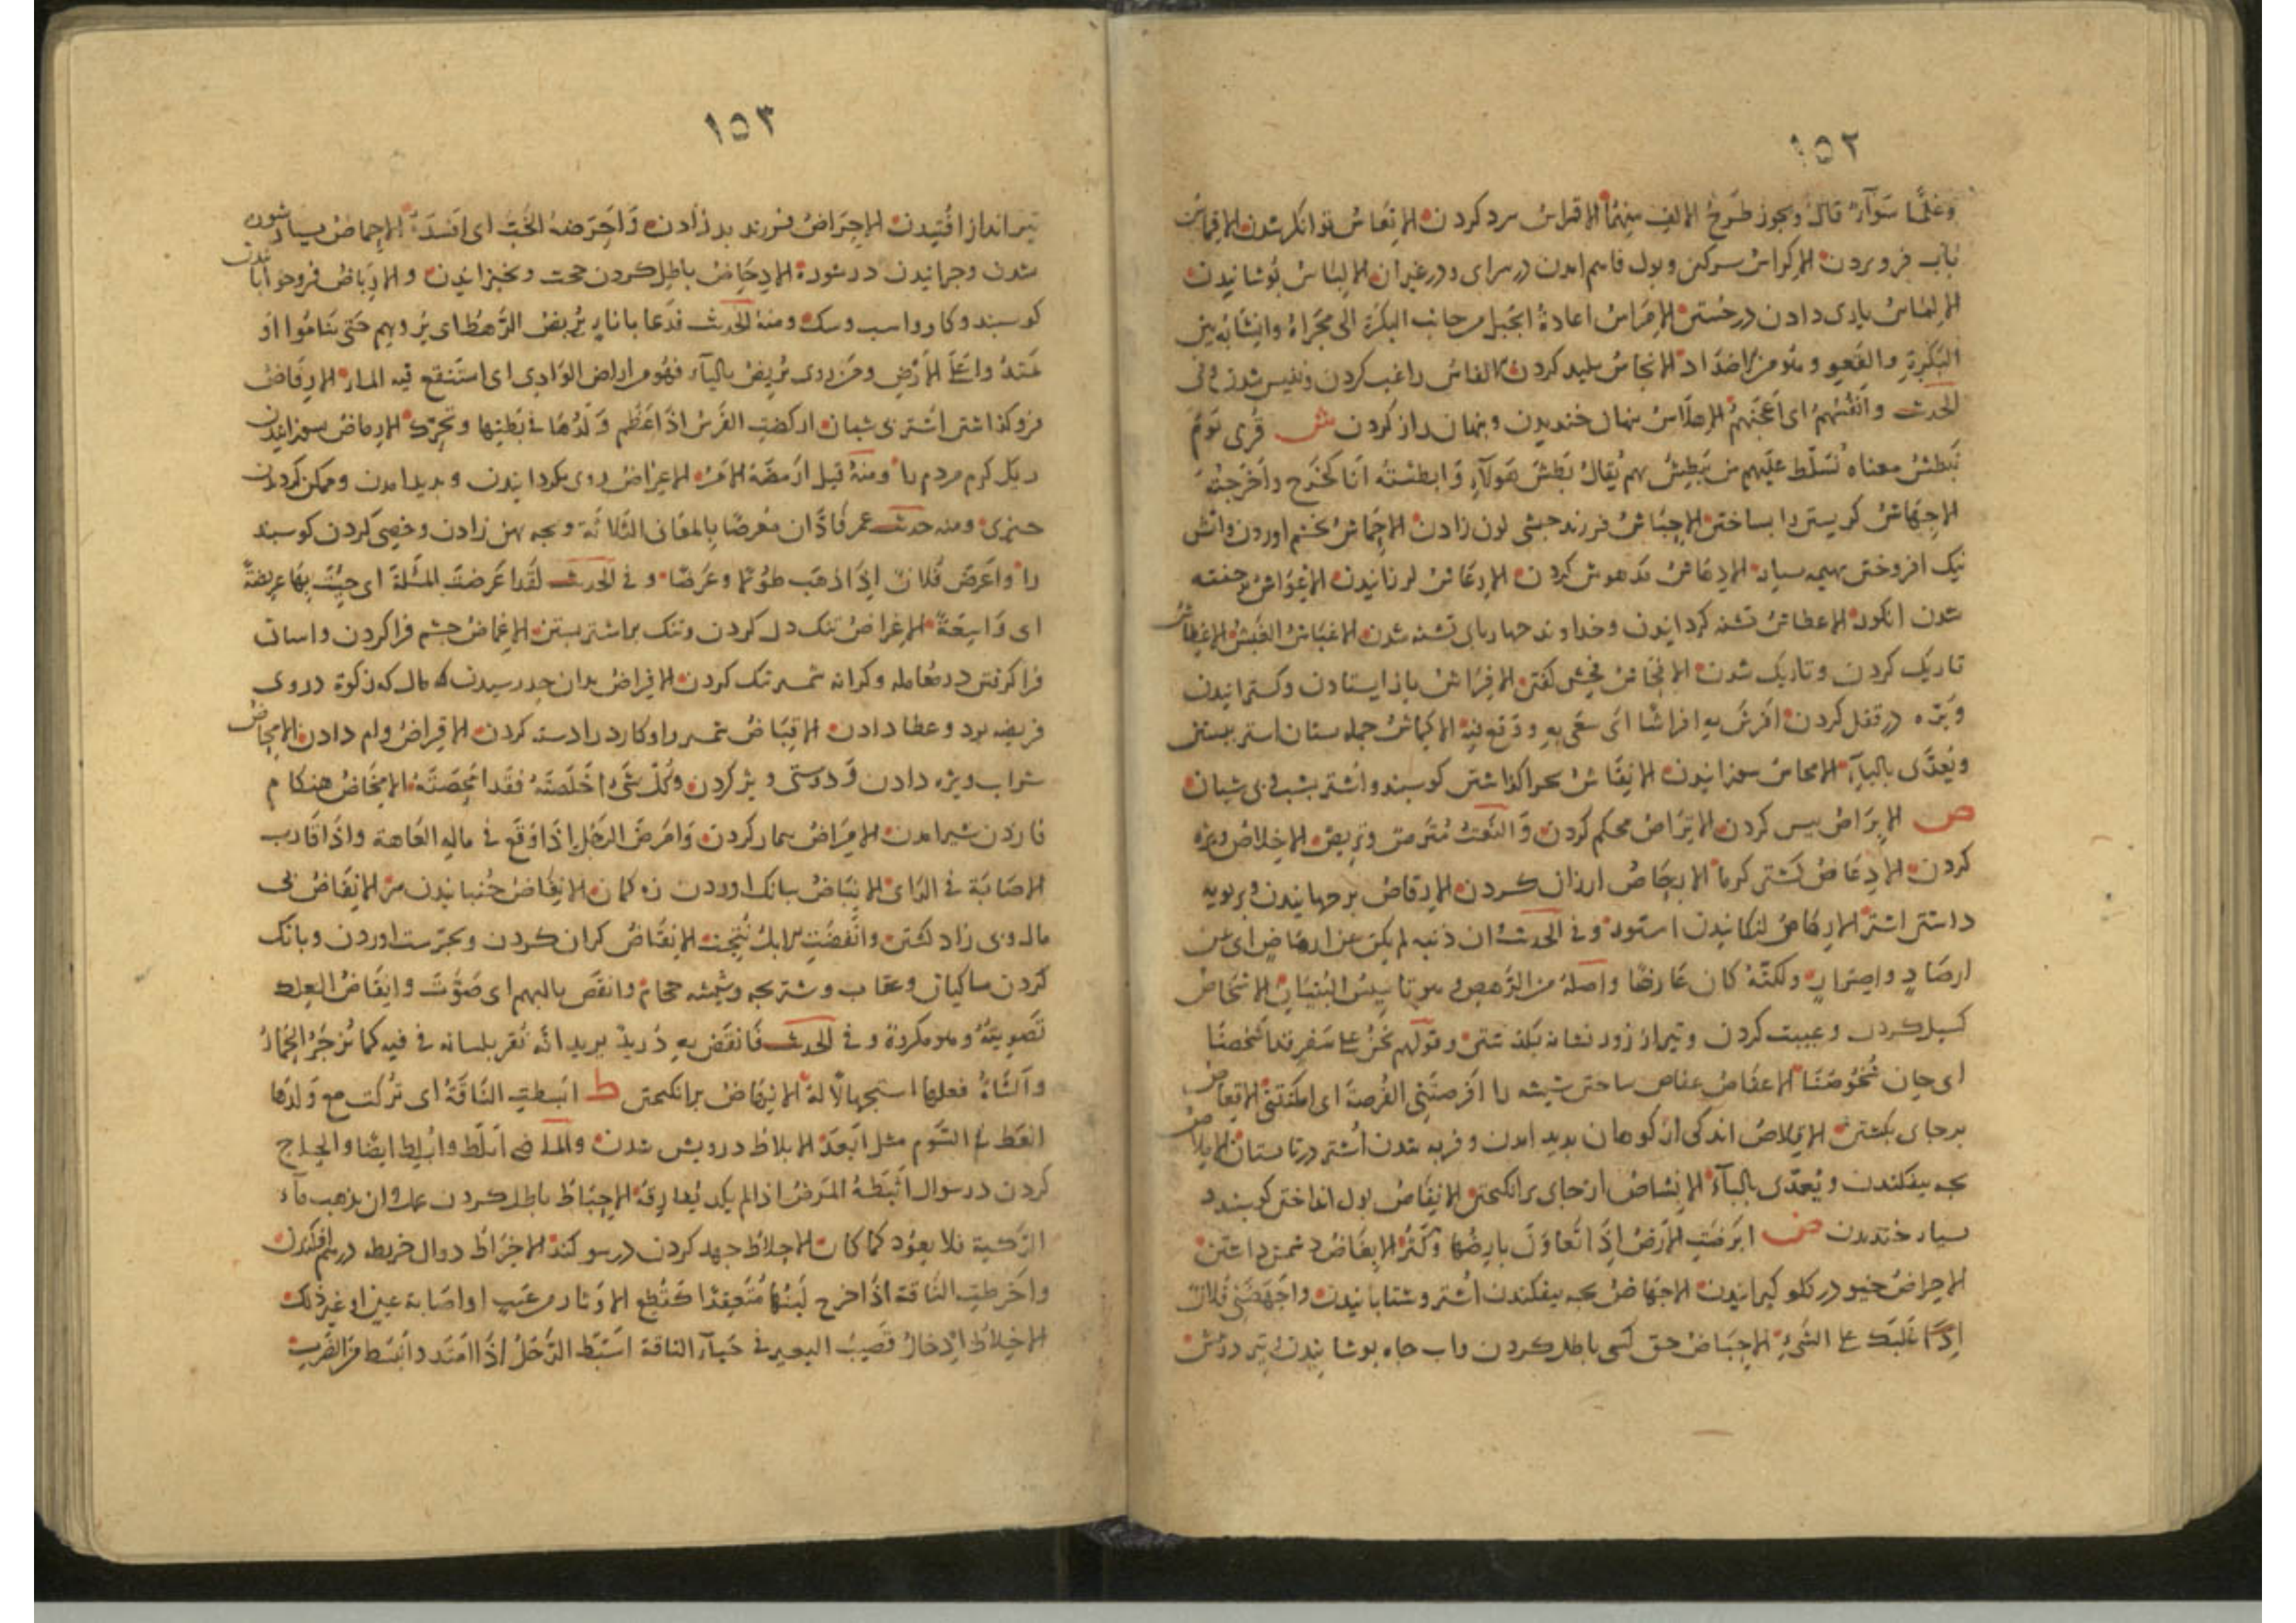 ١٥٢
وغلّما سَوآءٌ قال ويجوز طَرحُ الالِف مِنهُما الاقراس سرد كردن الاتعاس توانكر شدن الاقماس
بآب فرو بردن الاكراس سركين وبول فاهم امدن در سراى و در غير ان الالباس پوشانيدن
الالماس يارى دادن در جستن الامراس اعادةُ الحَبل من جانب البكرة الى مَجراهُ وانشابه بين
البَكرةِ والقَعوِ وهو من الاضداد الانجاس پليد كردن الانفاس راغب كردن ونفيس شدن وفى
الحديث وانفَسَهُم اى اَعجَبَهُم الاهلاس پنهان خنديدن و پنهان راز كردن ش قُرِى يَومَ
نُبطِشُ معناه نُسَلِّط عليهم من يَبطِشُ بهم يُقالُ بَطَشَ هَولآءِ وَابطشتُه اَنا كخَرَج واَخرَجتُه
الاجهاش كريستن را بساختن الاحباش فرزند حبشى لون زادن الاحماش بخشم اوردن واتش
نيك افروختن بهيمه بسيار الادهاش مدهوش كردن الارعاش لرزانيدن
شدن انكور الاعطاش تشنه كردانيدن وخداوند چهارپاى تشنه شدن الاغباش الغَبَشُ الاغطاش
تاريك كردن وتاريك شدن الافحاش فحش گفتن الافراش باز ايستادن وكسترانيدن
وبَرّه در قفل كردن اَفرَشَ بهِ افراشًا اى سعَى بهِ ووقع فيه الاكماش جمله پستان اشتر ببستن
ويُعَدَّى بالبآءِ الامحاش سوزانيدن الانفاش بچرا كذاشتن كوسبند واشتر بشب بى شبان
ص الابراص پيس كردن الاتراص محكم كردن وَالنعت مُترَص وتريص الاخلاص ويژه
كردن الادعاص كشتن كرما الارخاص ارزان كردن الارقاص برجهانيدن و بر پويه
داشتن اشتر الارهاص لنكانيدن استور وفى الحديث ان ذنبه لم يكن عن ارهاص اى عن
ارصادٍ واِصرارٍ ولكنّهُ كان عَارضًا واصلهُ من الرَّهص وهو تاسيسُ البُنيانِ الاشخاص
كسيل كردن وعيبت كردن وتيرار زود نشانه بكذشتن وقولهم نحنُ على سَفرٍ قد اَشخَصنا
اى حان شُخُوصُنَا الاعفاص عفاص ساختن شيشه را اَفرصَتنِى الفُرصَةُ اى امكنَتنِى الاقعاص
برجاى بكشتن الاقلاص اندكى از كوهان پديد امدن و فربه شدن اُشتر در تابستان الاملاص
بچه بيفكندن ويُعدّى بالبآءِ الانشاص از جاى برانكيختن الانفاص بول انداختن كوسبند و
بسيار خنديدن ض ابرَضَتِ الارضُ اِذَا تَعاوَنَ بارِضُها وكَثُرَ الابغاض دشمن داشتن
الاجراض خيو در كلو كيرانيدن الاجهاض بچه بيفكندن اُشتر و شتابانيدن واَجهَضَنِى فُلانٌ
اِذا غَلَبَك على الشَىءِ الاحباض حق كسى باطل كردن واب چاه بوشانيدن و تير در پيش
١٥٣
تير انداز افتيدن الاحراض فرزند بد زادن وَاَحرَضهُ الحُبُّ اى افسَدَهُ الاحماض بسيار شوره
شدن وچرانيدن در شوره الادحاض باطل كردن حجت و بخيزانيدن والارباض فروخوابانيدن
كوسبند وكاو واسب وسك ومنهُ الحديث فدَعا بانآءٍ يُربِضُ الرَّهطَ اى يُرويهم حَتى يَنامُوا او
يَمتدّوا على الارضِ ومن روى يُريضُ باليآء فهُو من اراض الوَادِى اى استَنقع فيه المآء الارفاض
فرو كذاشتن اُشتر بى شبان اركضتِ الفَرَسُ اذا عَظُم وَلَدُها فى بَطنِها وتحرّك الارماض سوزانيدن
ريك كرم مردم را ومنهُ قيل اَرمَضَهُ الامرُ الاعراض روى بكردانيدن و پديد امدن وممكن كردانيدن
چيزى ومنه حديث عمر فَادّان مُعرِضًا بالمعَانى الثّلاثة وبچه پهن زادن وخصى كردن كوسبند
را واَعرَضَ فُلانٌ اِذا ذهَب طُولًا وعَرضًا وفى الحديث لقَد اَعرَضتَ المسئلةَ اى جِئتَ بِهَا عريضةً
اى وَاسِعَةً الاغراض تنك دل كردن وتنك براشتر بستن الاغماض چشم فرا كردن واسان
فرا كرفتن در معامله وكرانه شمشير تنك كردن الافراض بدان حد رسيدن مال كه زكوة در وى
فريضه بود و عطا دادن الاقباض شمشير را و كارد را دسته كردن الاقراض وام دادن الامحاض
شراب ويژه دادن وَدوستى ويژه كردن وكلُّ شَىءٍ اَخلَصتَهُ فقَد اَمحَضتَهُ الامخاض هنكام
فا زدن شير امدن الامراض بيمار كردن وَامرَضَ الرَجُلُ اِذا وَقَع فى مالِه العَاهة واذا قَارب
الاصابَة فى الرَاىِ الانباض ببانك اوردن زه كمان الانفاض جُنبانيدن سر الانفاض بى
مال وبى زاد كشتن واُنفِضَتِ الابِلُ نُتِجَت الانقاض كران كردن وبحرست اوردن وبانك
كردن ماكيان وعقاب وشتربچه وشيشه حجام وانقَض بالبهم اى صَوَّتَ وانقاضُ العِلك
تَصوِيتُهُ وهو مكروهٌ وفى الحديث فانقَض بهِ دُريدٌ يريد انّه نَقر بلسانه فى فيه كما يُزجَرُ الحِمارُ
وآلشاةُ فعلها استجهالًا لهُ الانهاض برانكيختن ط ابسطتِ النَاقةُ اى تُركت مع وَلدها
ابعَط فى السَّوم مثل اَبعَدَ الابلاط درويش شدن والماضى اَبلَط واُبلِطَ ايضًا والحاح
كردن در سوال اَثبَطَهُ المَرضُ اذا لم يكد يُفارقهُ الاحباط باطل كردن عمل وان يذهب مآء
الرّكيّة فلا يعودُ كما كان الاحلاط جهد كردن در سوكند الاخراط دوال خريطه در هم افكندن
واَخرَطتِ النَاقة اِذا خرج لَبَنُها مُتَعقِدًا كقِطع الاوتار من عَيبٍ او اصَابة عينٍ او غير ذلك
الاخلاط اِدخالُ قَضِيبُ البعيرِ فى حَيآء الناقة اسبَط الرَجُلُ اذا امتَد وانبَسَط من الضَرب